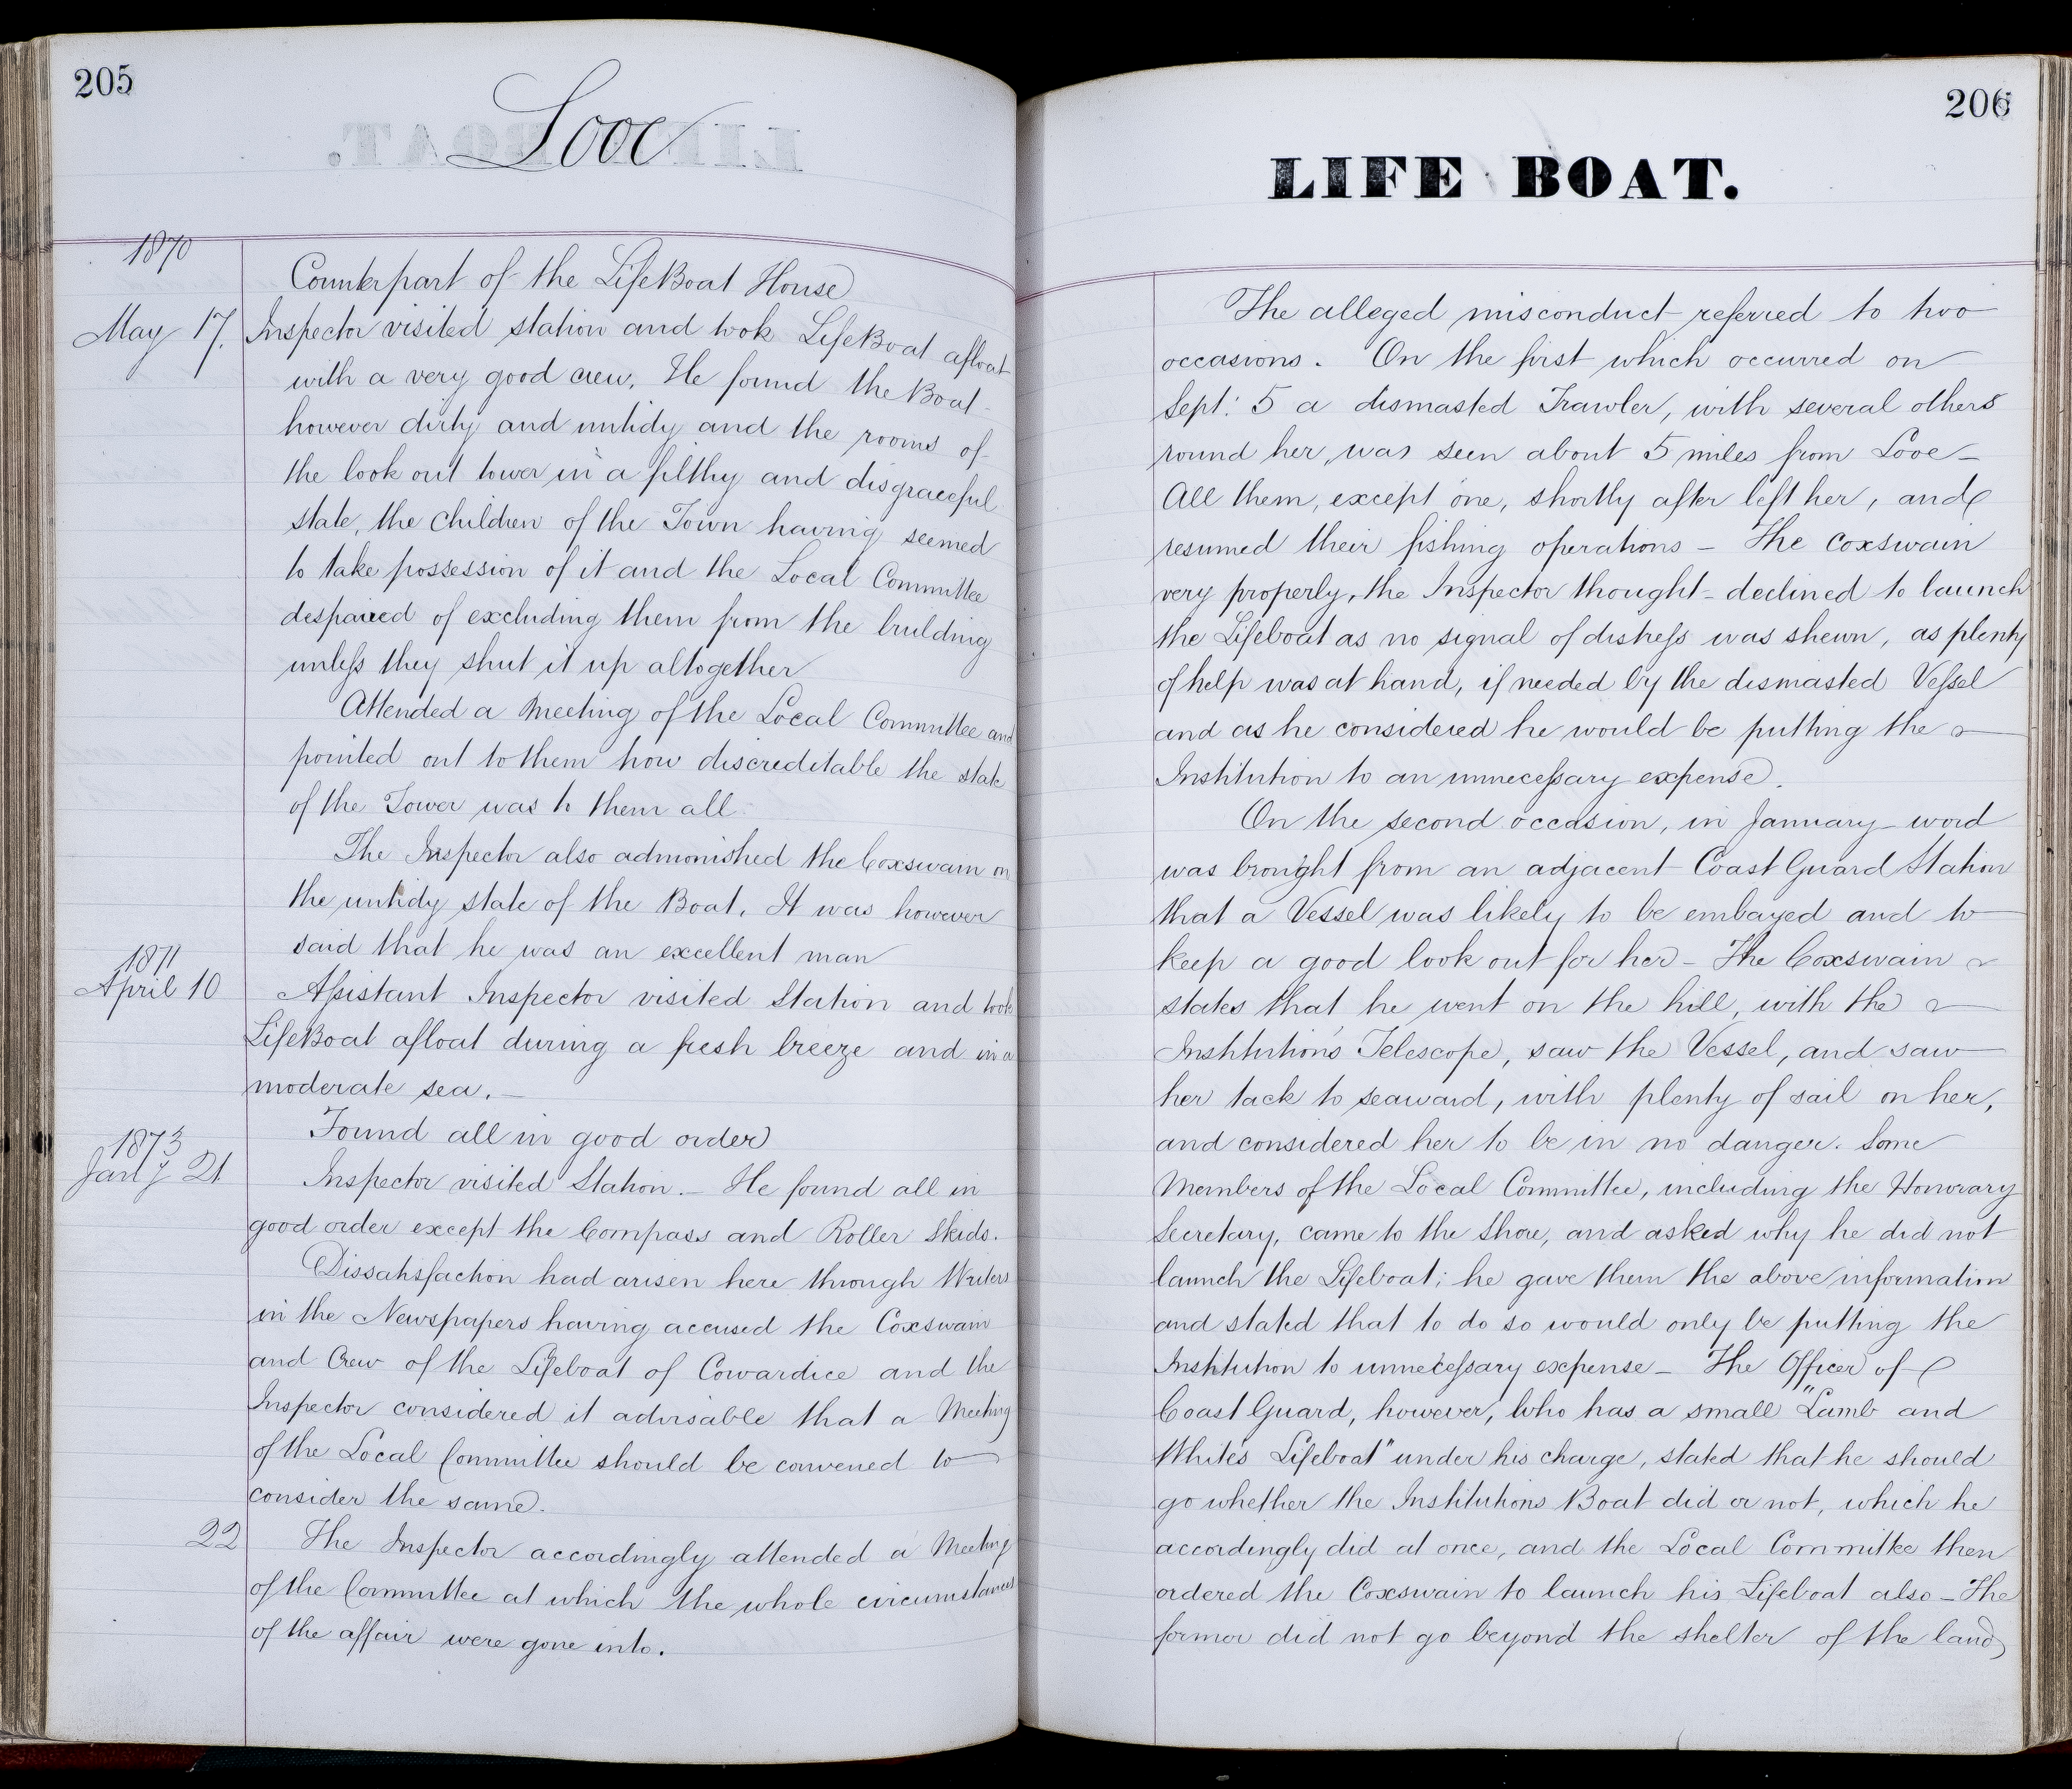 205
Looe
1870
Counterpart of the LifeBoat House
May 17. Inspector visited station and took LifeBoat afloat
with a very good crew. He found the Boat
however dirty and untidy and the rooms of
the look out tower in a filthy and disgraceful
state, the children of the Town having seemed
to take possession of it and the Local Committee
despaired of excluding them from the building
unless they shut it up altogether
Attended a Meeting of the Local Committee and
pointed out to them how discreditable the state
of the Tower was to them all.
The Inspector also admonished the Coxswain on
the untidy state of the Boat. It was however
said that he was an excellent man
1871
April 10 Assistant Inspector visited Station and took
LifeBoat afloat during a fresh breeze and in a
moderate sea. —
Found all in good order
1873
Jany 21 Inspector visited Station. — He found all in
good order except the Compass and Roller Skids.
Dissatisfaction had arisen here through Writers
in the Newspapers having accused the Coxswain
and Crew of the Lifeboat of Cowardice and the
Inspector considered it advisable that a Meeting
of the Local Committee should be convened to
consider the same.
22 The Inspector accordingly attended a Meeting
of the Committee at which the whole circumstances
of the affair were gone into.
206
LIFE BOAT.
The alleged misconduct referred to two
occasions. On the first which occurred on
Sept: 5 a dismasted Trawler, with several others
round her, was seen about 5 miles from Looe —
All them, except one, shortly after left her, and
resumed their fishing operations — The Coxswain
very properly, the Inspector thought — declined to launch
the Lifeboat as no signal of distress was shewn, as plenty
of help was at hand, if needed by the dismasted Vessel
and as he considered he would be putting the
Institution to an unnecessary expense.
On the second occasion, in January — word
was brought from an adjacent Coast Guard Station
that a Vessel was likely to be embayed and to
keep a good look out for her — The Coxswain
states that he went on the hill, with the
Institution's Telescope, saw the Vessel, and saw
her tack to seaward, with plenty of sail on her,
and considered her to be in no danger. Some
Members of the Local Committee, including the Honorary
Secretary, came to the shore, and asked why he did not
launch the Lifeboat; he gave them the above information
and stated that to do so would only be putting the
Institution to unnecessary expense — The Officer of
Coast Guard, however, who has a small "Lamb and
White's Lifeboat" under his charge, stated that he should
go whether the Institutions Boat did or not, which he
accordingly did at once, and the Local Committee then
ordered the Coxswain to launch his Lifeboat also — The
former did not go beyond the shelter of the land,